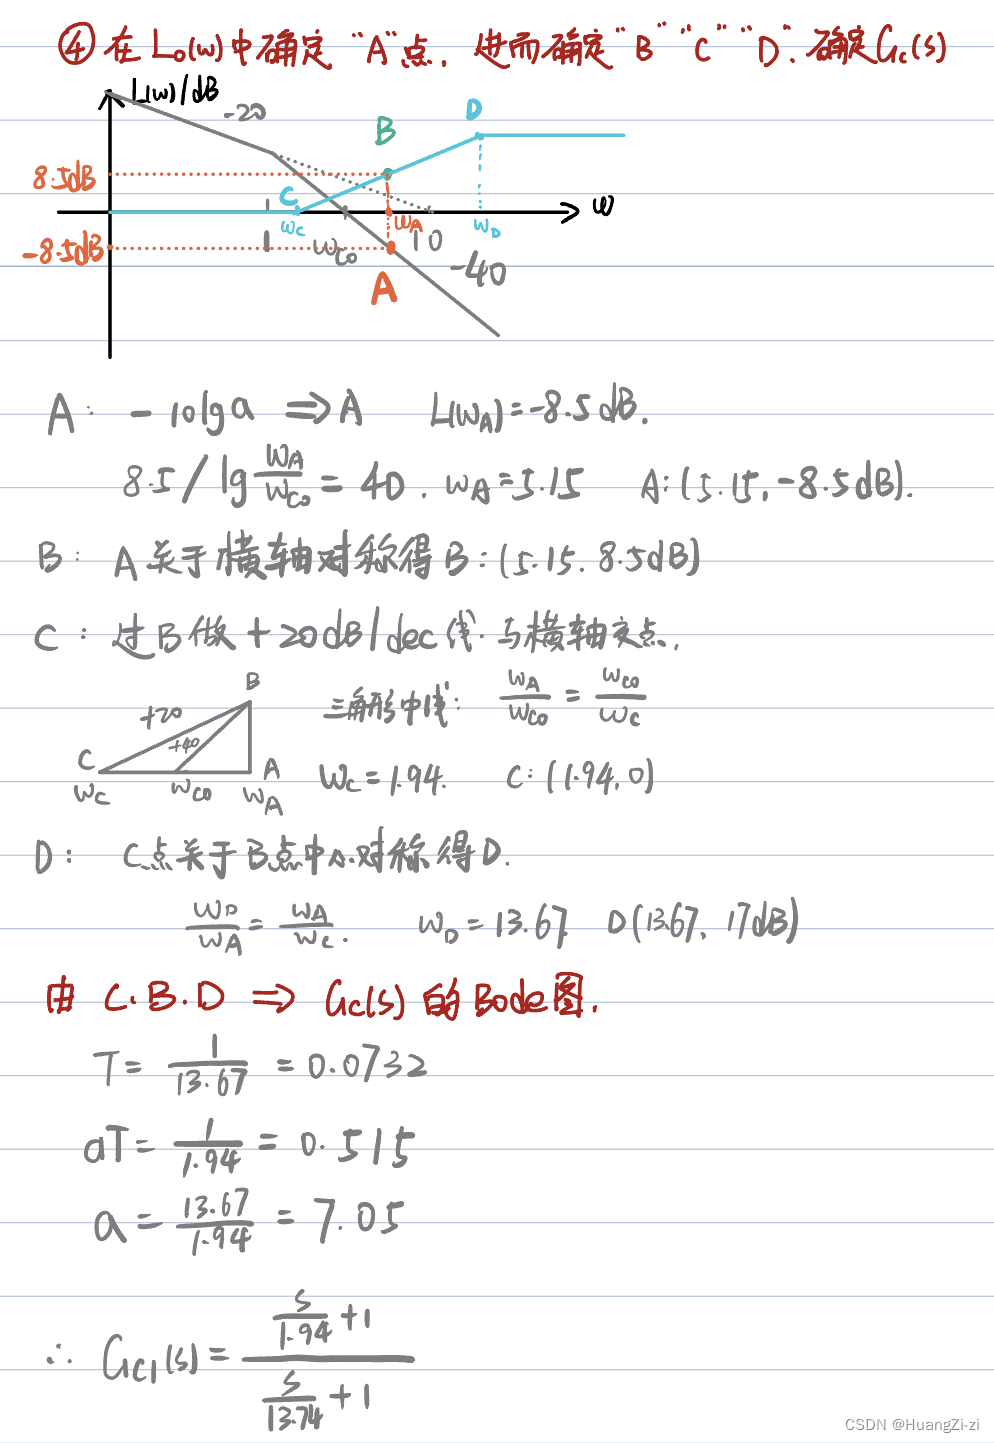 ④ 在 L₀(w)中确定 "A"点, 进而确定"B" "C" "D". 确定Gc(s)
L(w)/dB
-20
D
B
8.5dB
C
w
wc
wA
wD
1
wco
10
-8.5dB
-40
A
A: -10lga ⇒A L(wA)=-8.5dB.
8.5/lg wA/wco = 40. wA=5.15 A:(5.15,-8.5dB).
B: A关于横轴对称得B:(5.15. 8.5dB)
C: 过B做+20dB/dec线与横轴交点.
B
+20
+40
C
A
wc
wco
wA
三角形中线: wA/wco = wco/wc
wc=1.94. C:(1.94,0)
D: C点关于B点中心对称得D.
wD/wA = wA/wc. wD=13.67 D(13.67, 17dB)
由 C.B.D ⇒ Gc(s)的Bode图.
T= 1/13.67 = 0.0732
aT= 1/1.94 = 0.515
a = 13.67/1.94 = 7.05
∴ Gc1(s)= (s/1.94 +1)/(s/13.74 +1)
CSDN @HuangZi-zi